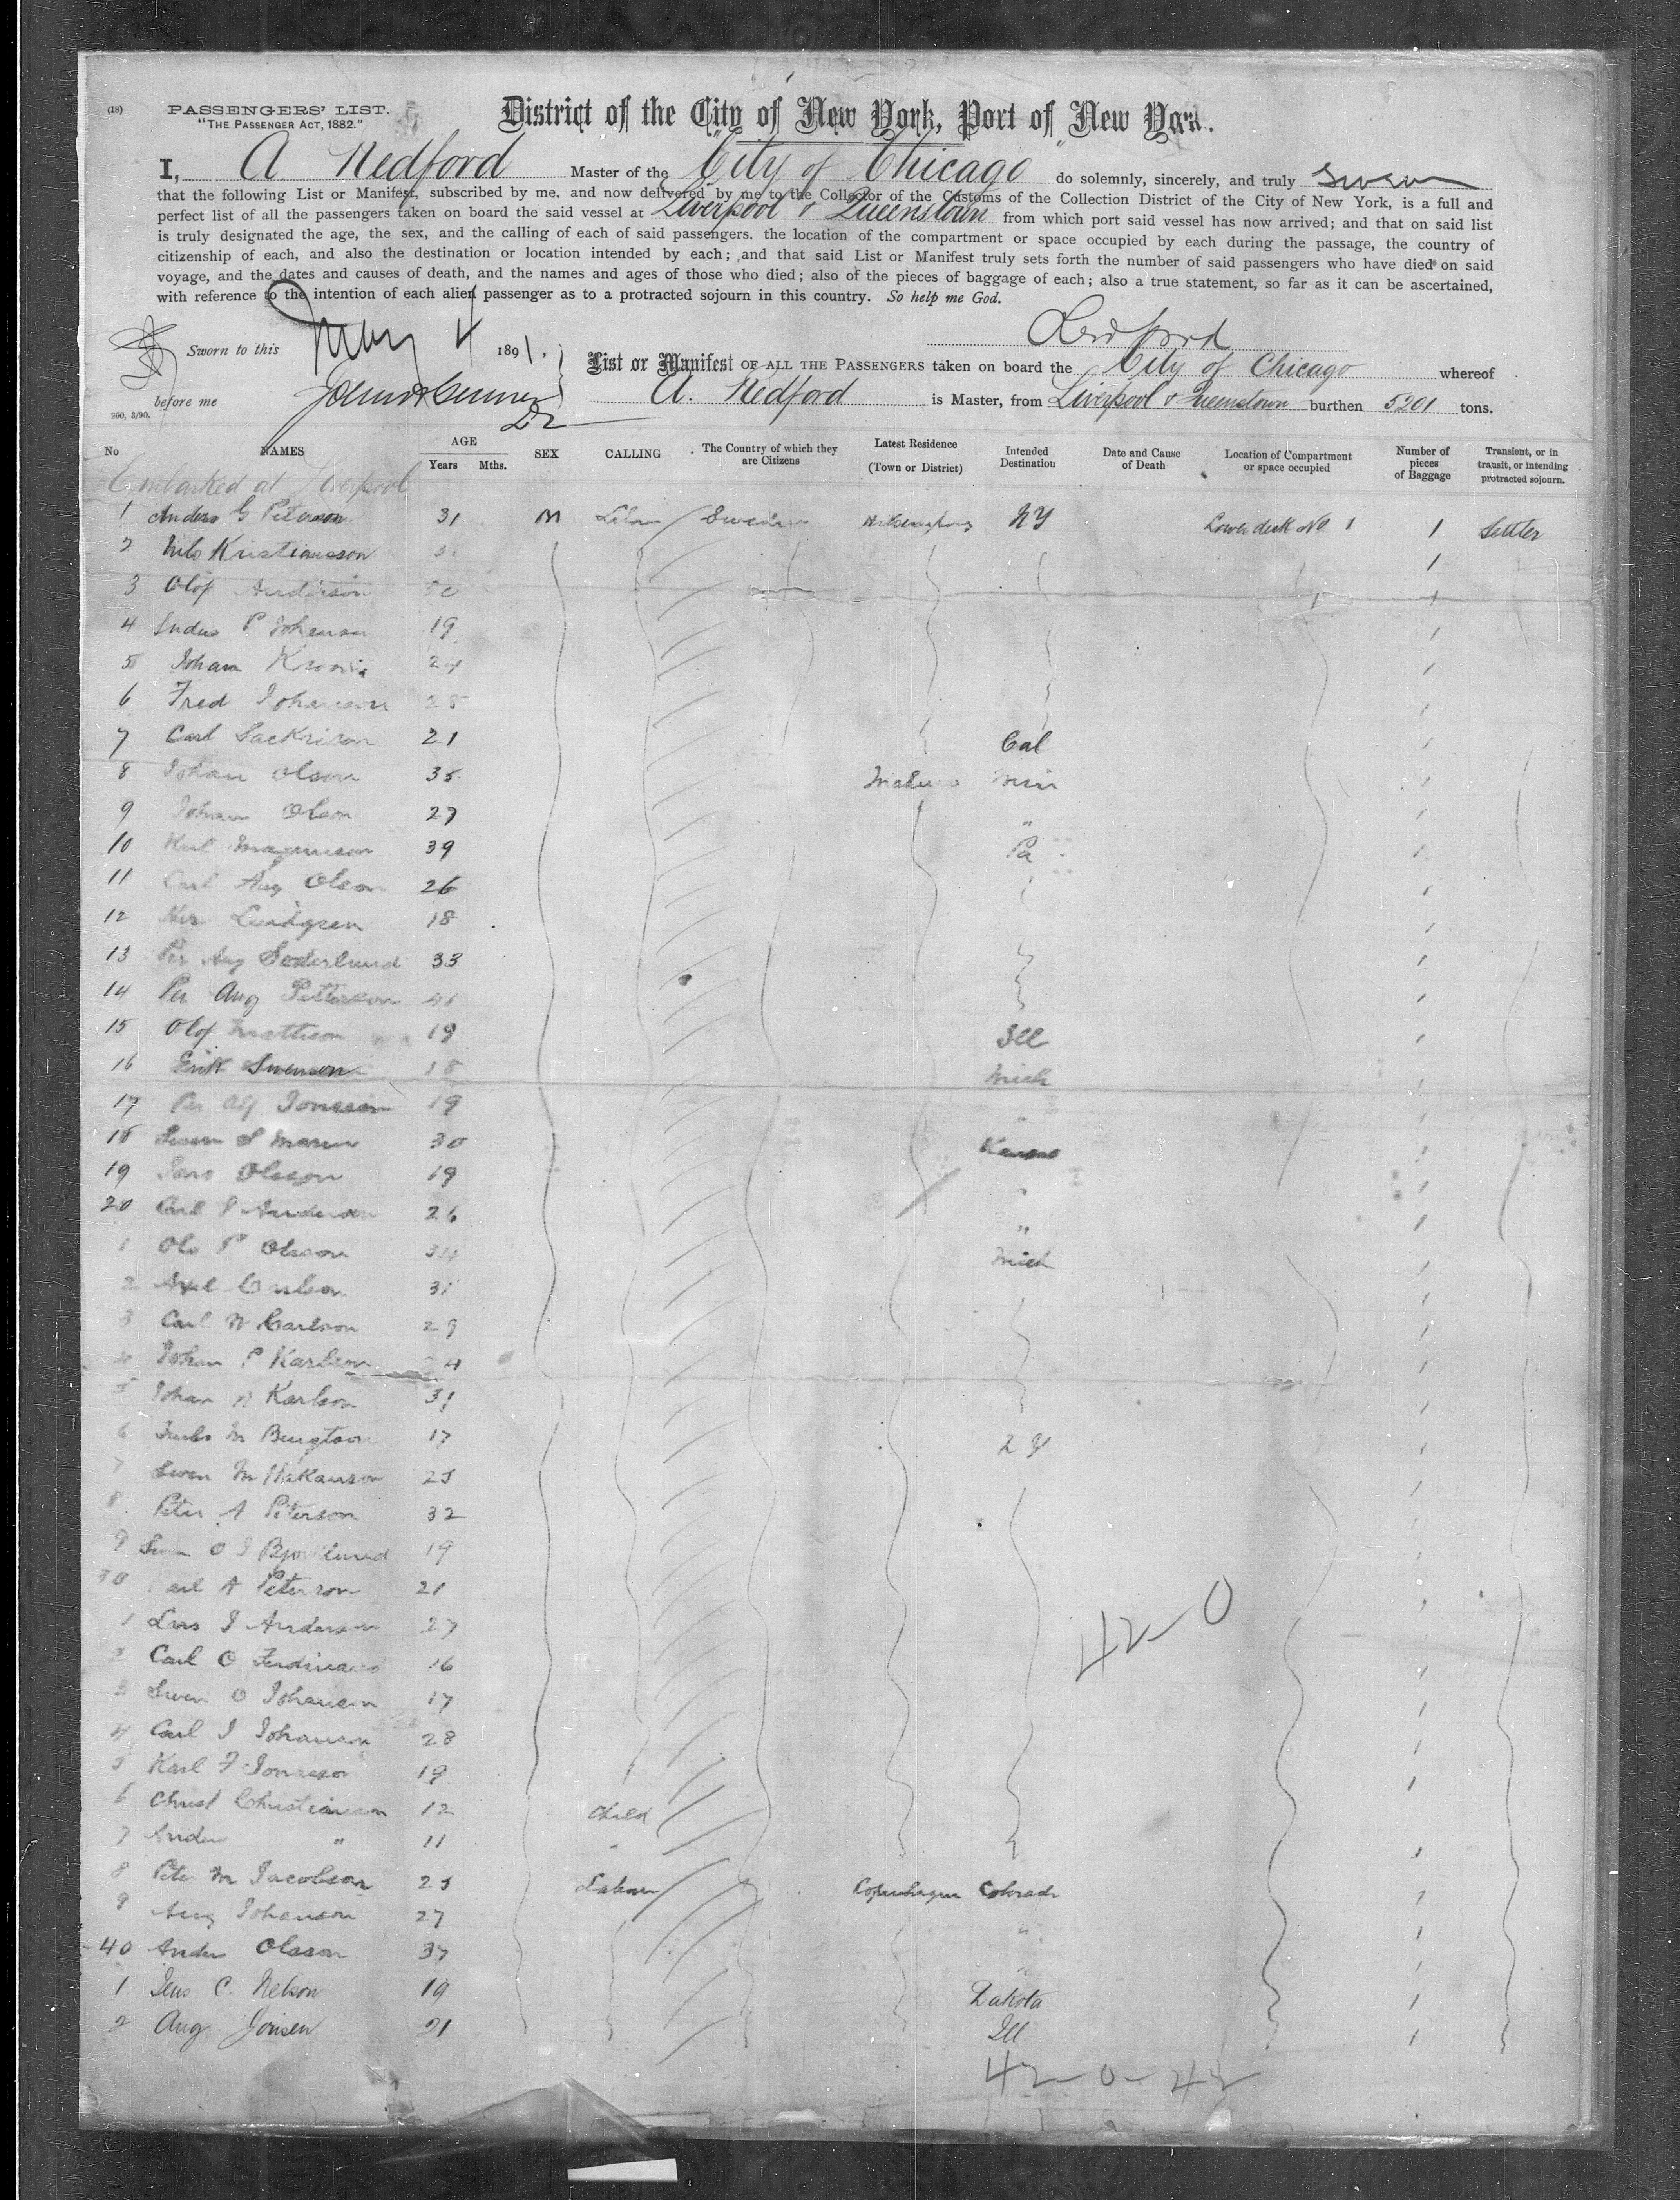 (18)
PASSENGERS' LIST.
"THE PASSENGER ACT, 1882."
District of the City of New York, Port of New York.
I, A. Redford Master of the "City of Chicago" do solemnly, sincerely, and truly swear
that the following List or Manifest, subscribed by me, and now delivered by me to the Collector of the Customs of the Collection District of the City of New York, is a full and
perfect list of all the passengers taken on board the said vessel at Liverpool & Queenstown from which port said vessel has now arrived; and that on said list
is truly designated the age, the sex, and the calling of each of said passengers, the location of the compartment or space occupied by each during the passage, the country of
citizenship of each, and also the destination or location intended by each; and that said List or Manifest truly sets forth the number of said passengers who have died on said
voyage, and the dates and causes of death, and the names and ages of those who died; also of the pieces of baggage of each; also a true statement, so far as it can be ascertained,
with reference to the intention of each alien passenger as to a protracted sojourn in this country. So help me God.
Redford
Sworn to this May 4 1891.
List or Manifest OF ALL THE PASSENGERS taken on board the City of Chicago whereof
before me
A. Redford is Master, from Liverpool & Queenstown burthen 5201 tons.
200, 3/90.
No NAMES AGE Years Mths. SEX CALLING The Country of which they are Citizens Latest Residence (Town or District) Intended Destination Date and Cause of Death Location of Compartment or space occupied Number of pieces of Baggage Transient, or in transit, or intending protracted sojourn.
Embarked at Liverpool
1 Anders G Peterson 31 M Labor Sweden NY Lower deck No 1 1 Settler
2 Nils Kristiansson 1
3 Olof Anderson 1
4 P Johanson 19 1
5 Johan 24 1
6 Fred Johanson 28 1
7 Carl Sackrison 21 Cal 1
8 Johan Olson 35 Min 1
9 Johan Olson 27 " 1
10 Magnuson 39 Pa 1
11 Carl Aug Olson 26 1
12 Lindgren 18 1
13 Per Aug Soderlund 33 1
14 Per Aug Petterson 1
15 Olof Mattison 19 Ill 1
16 Erik Swenson 18 Mich 1
17 Per Alf Jonsson 19 " 1
18 30 Kansas 1
19 Olsson 19 " 1
20 Carl J Anderson 26 " 1
1 Ole P Olsson 34 Mich 1
2 Axel Carlson 31 1
3 Carl W Carlson 29 1
4 Johan P Karlson 1
5 Johan Karlson 31 1
6 M Bengtson 17 NY 1
7 Swen M Hakanson 25 1
8 Peter A Peterson 32 1
9 Swen O J Bjorklund 19 1
30 Carl A Peterson 21 1
42-0
1 Lars J Anderson 27
2 Carl O Ferdinand 16 1
3 Swen O Johanson 17 1
4 Carl J Johanson 28 1
5 Karl F Jonasson 19 1
6 Christ Christianson 12 Child
7 Anders " 11 " 1
8 Peter M Jacobson 25 Labour Copenhagen Colorado 1
9 Aug Johanson 27 " 1
40 Anders Olsson 37 " 1
1 Jens C. Nelson 19 Dakota 1
2 Aug Jonsen 21 Ill 1
42-0-42